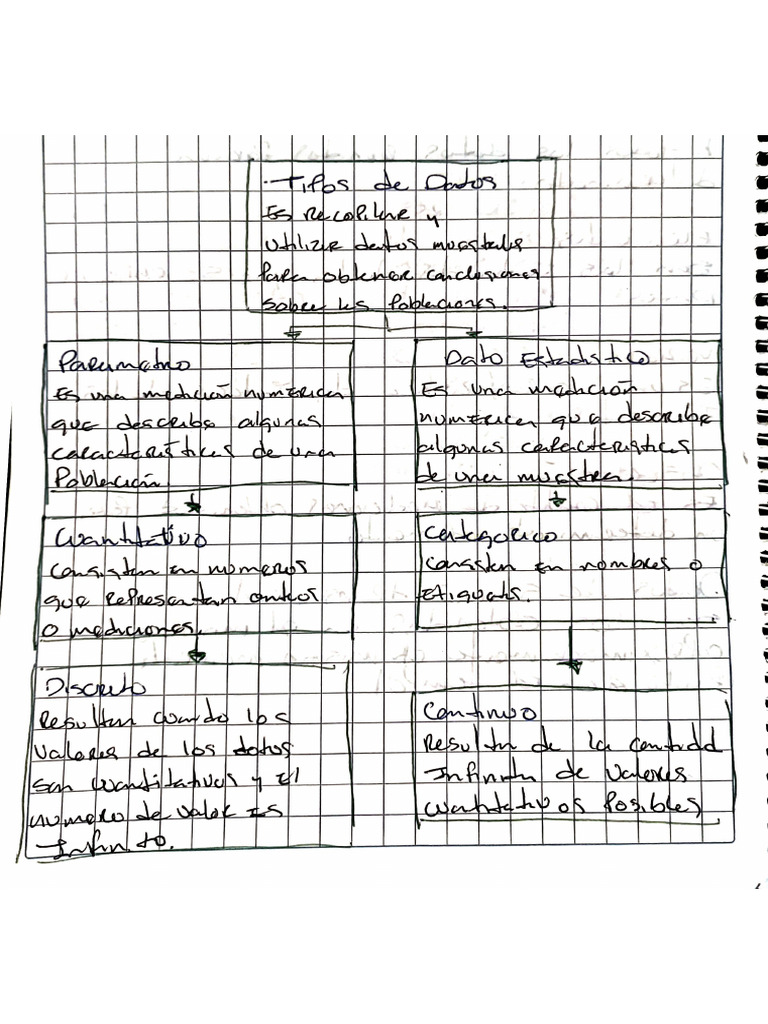 Tipos de Datos
Es recopilar y
utilizar datos muestrales
para obtener conclusiones
sobre las Poblaciones.
Parametro
Es una medición numérica
que describe algunas
características de una
Población
Dato Estadistico
Es una medición
numerica que describe
algunas caracteristicas
de una muestra.
Cuantitativo
Consisten en numeros
que representan conteos
o mediciones.
Categorico
consisten en nombres o
etiquetas.
Discreto
Resultan cuando los
valores de los datos
son cuantitativos y el
numero de valor es
Infinito.
Continuo
Resulta de la cantidad
Infinita de valores
cuantitativos Posibles